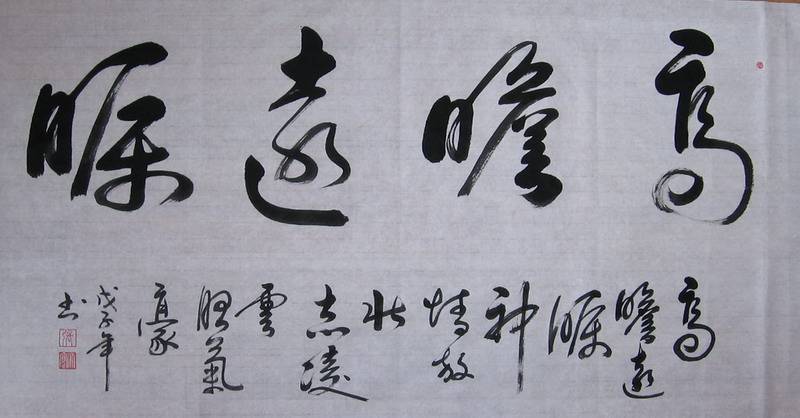 高瞻遠矚
高
瞻遠
矚
神
情放
壯
志凌
雲
胆氣
豪
戊子年
书